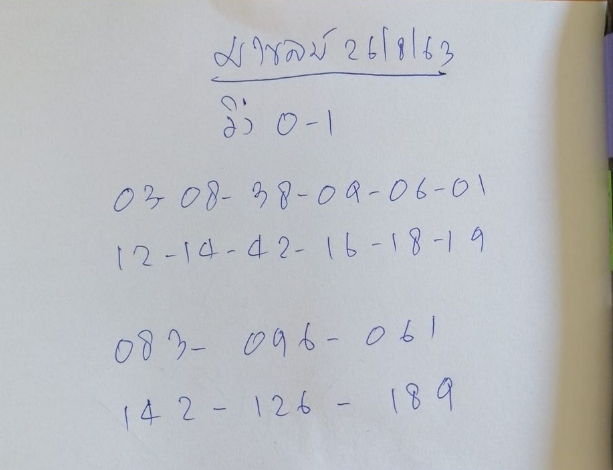 มาเลย์ 26/8/63
วิ่ง 0-1
03-08-38-09-06-01
12-14-42-16-18-19
083- 096- 061
142 - 126 - 189